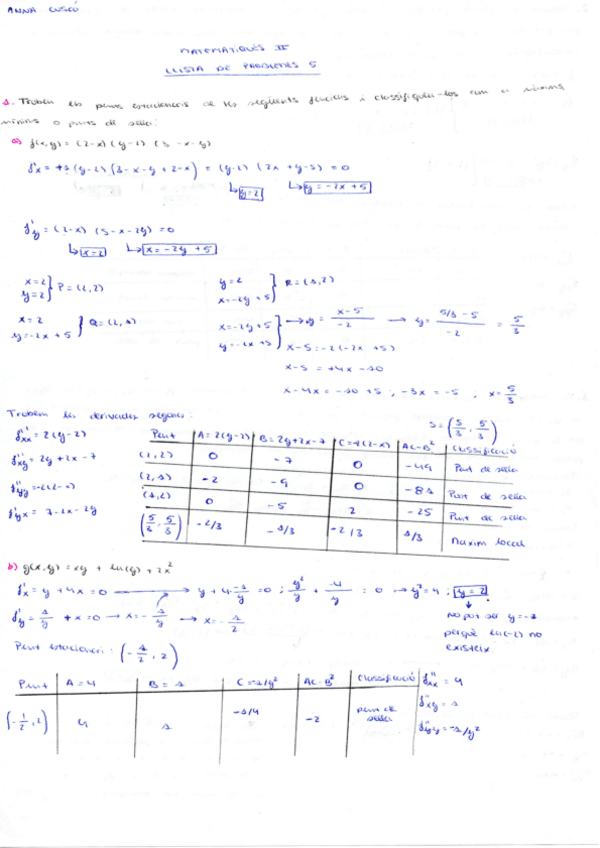 ANNA CUSCÓ
MATEMÀTIQUES II
LLISTA DE PROBLEMES 5
1. Trobeu els punts estacionaris de les següents funcions i classifiqueu-los com a màxims,
mínims o punts de sella:
a) f(x,y) = (2-x)(y-2)(3-x-y)
= (y-2)(2x+y-5) = 0
y=2 y=-2x+5
f'y = (2-x)(5-x-2y) = 0
x=2 x=-2y+5
x=2 y=2 } P=(2,2) y=2 x=-2y+5 } R=(1,2)
x=2 y=-2x+5 } Q=(2,1) x=-2y+5 y=-2x+5 } → y = x-5 / -2 → y = 5/3 - 5 / -2 = 5/3
x-5 = -2(-2x+5)
x-5 = +4x-10
x-4x = -10+5 ; -3x = -5 , x = 5/3
S = (5/3, 5/3)
Trobem les derivades segones:
f''xx = 2(y-2)
f''xy = 2y+2x-7
f''yx = 7-2x-2y
Punt | A=2(y-2) | B=2y+2x-7 | C=2(2-x) | AC-B² | Classificació
(2,2) | 0 | -7 | 0 | -49 | Punt de sella
(2,1) | -2 | -9 | 0 | -81 | Punt de sella
(1,2) | 0 | -5 | 2 | -25 | Punt de sella
(5/3, 5/3) | -2/3 | -1/3 | -2/3 | 1/3 | Màxim local
b) g(x,y) = xy + ln(y) + 2x²
f'x = y+4x = 0 → y + 4·-1/y = 0 ; y²/y + -4/y = 0 → y²=4 ; y=2
f'y = 1/y + x = 0 → x = -1/y → x = -1/2
No pot ser y=-2
perquè ln(-2) no
existeix
Punt estacionari: (-1/2, 2)
Punt | A=4 | B=1 | C=-1/y² | AC-B² | Classificació
(-1/2, 2) | 4 | 1 | -1/4 | -2 | punt de sella
f''xx = 4
f''xy = 1
f''yy = -1/y²